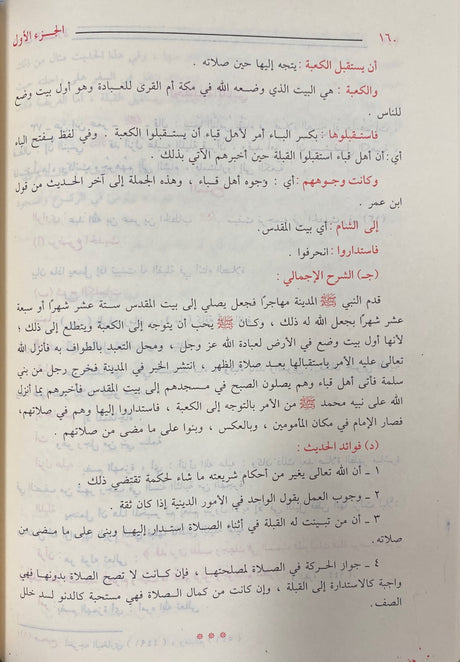 ١٦٠ الجزء الأول
أن يستقبل الكعبة : يتجه إليها حين صلاته .
والكعبة : هي البيت الذي وضعه الله في مكة أم القرى للعبادة وهو أول بيت وضع
للناس .
فاستقبلوها : بكسر الباء أمر لأهل قباء أن يستقبلوا الكعبة . وفي لفظ بفتح الباء
أي : أن أهل قباء استقبلوا القبلة حين أخبرهم الآتي بذلك .
وكانت وجوههم : أي : وجوه أهل قباء ، وهذه الجملة إلى آخر الحديث من قول
ابن عمر .
إلى الشام : أي بيت المقدس.
فاستداروا : انحرفوا .
(جـ) الشرح الإجمالي :
قدم النبي ﷺ المدينة مهاجرًا فجعل يصلي إلى بيت المقدس ستة عشر شهرًا أو سبعة
عشر شهرًا يجعل الله له ذلك ، وكان ﷺ يحب أن يتوجه إلى الكعبة ويتطلع إلى ذلك ؛
لأنها أول بيت وضع في الأرض لعبادة الله عز وجل ، ومحل التعبد بالطواف به فأنزل الله
تعالى عليه الأمر باستقبالها بعد صلاة الظهر ، انتشر الخبر في المدينة فخرج رجل من بني
سلمة فأتى أهل قباء وهم يصلون الصبح في مسجدهم إلى بيت المقدس فأخبرهم بما أنزل
الله على نبيه محمد ﷺ من الأمر بالتوجه إلى الكعبة ، فاستداروا إليها وهم في صلاتهم،
فصار الإمام في مكان المأمومين ، وبالعكس ، وبنوا على ما مضى من صلاتهم .
(د) فوائد الحديث :
١ - أن الله تعالى يغير من أحكام شريعته ما شاء لحكمة تقتضي ذلك .
٢ - وجوب العمل بقول الواحد في الأمور الدينية إذا كان ثقة .
٣ - أن من تبينت له القبلة في أثناء الصلاة استدار إليها وبنى على ما مضى من
صلاته.
٤ - جواز الحركة في الصلاة لمصلحتها ، فإن كانت لا تصح الصلاة بدونها فهي
واجبة كالاستدارة إلى القبلة ، وإن كانت من كمال الصلاة فهي مستحبة كالدنو لسد خلل
الصف.
* * *